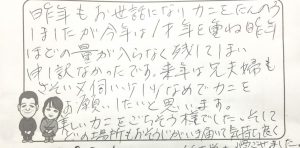 昨年もお世話になりカニをたんのう
しましたが今年は1才年を重ね昨年
ほどの量が入らなく残してしまい
申し訳なかったです。来年は兄夫婦も
さそい又伺います少なめでカニを
お願いしたいと思います。
美しいカニをごちそう様でした。そして
の場所もおそうじがいき届いて気持ち良く